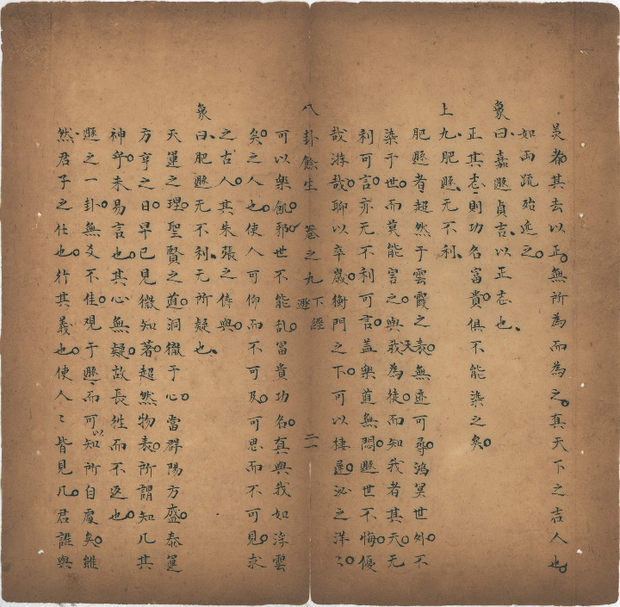 美者其去以正無所為而為之真天下之吉人也
如兩疏殆近之
象曰嘉遯貞吉以正志也
正其志則功名富貴俱不能染之矣
上九肥遯无不利
肥遯者超然于雲霞之表無迹可尋鴻冥世外不
染于世而莫能害之與天為徒而知我者其天无
利可言亦无不利可言蓋樂道無悶遯世不悔優
哉游哉聊以卒歲衡門之下可以棲遲泌之洋〻
八卦餘生 卷之九 下經 遯 二一
可以樂飢邪世不能乱富貴功名真與我如浮雲
矣之人也使人可仰而不可及可思而不可見求
之古人其朱張之儔與
象曰肥遯无不利无所疑也
天運之理聖賢之道洞徹于心當群陽方盛泰運
方亨之日早已見微知著超然物表所謂知几其
神乎未易言也其心無疑故長往而不返也
遯之一卦無爻不佳观于遯而可以知所自處矣雖
然君子之仕也行其義也使人〻皆見几君誰與